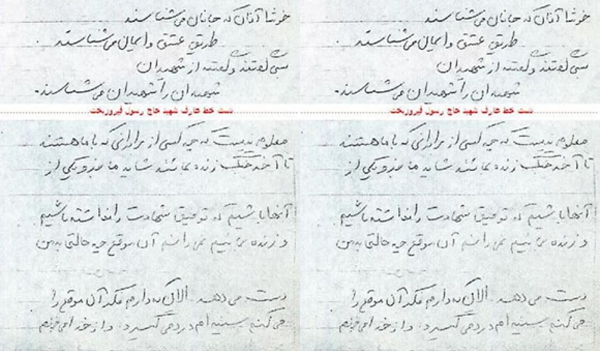 خوشا آنان که جانان می‌شناسند
طریق عشق و ایمان می‌شناسند
بسی گفتند و گفتند از شهیدان
شهیدان را شهیدان می‌شناسند.
دست خط عارف شهید حاج رسول فیروزبخت
معلوم نیست که چه کسی از برادرانی که با ما هستند
تا آخر جنگ زنده بمانند شاید ما نیز یکی از
آنها باشیم که توفیق شهادت را نداشته باشیم
و زنده نمی‌دانم آن موقع چه حالتی به من
دست می‌دهد. الان که دارم فکر آن موقع را
می‌کنم سینه‌ام درد می‌گیرد. و از خدا می‌خواهم
خوشا آنان که جانان می‌شناسند
طریق عشق و ایمان می‌شناسند
بسی گفتند و گفتند از شهیدان
شهیدان را شهیدان می‌شناسند.
دست خط عارف شهید حاج رسول فیروزبخت
معلوم نیست که چه کسی از برادرانی که با ما هستند
تا آخر جنگ زنده بمانند شاید ما نیز یکی از
آنها باشیم که توفیق شهادت را نداشته باشیم
و زنده نمی‌دانم آن موقع چه حالتی به من
دست می‌دهد. الان که دارم فکر آن موقع را
می‌کنم سینه‌ام درد می‌گیرد. و از خدا می‌خواهم